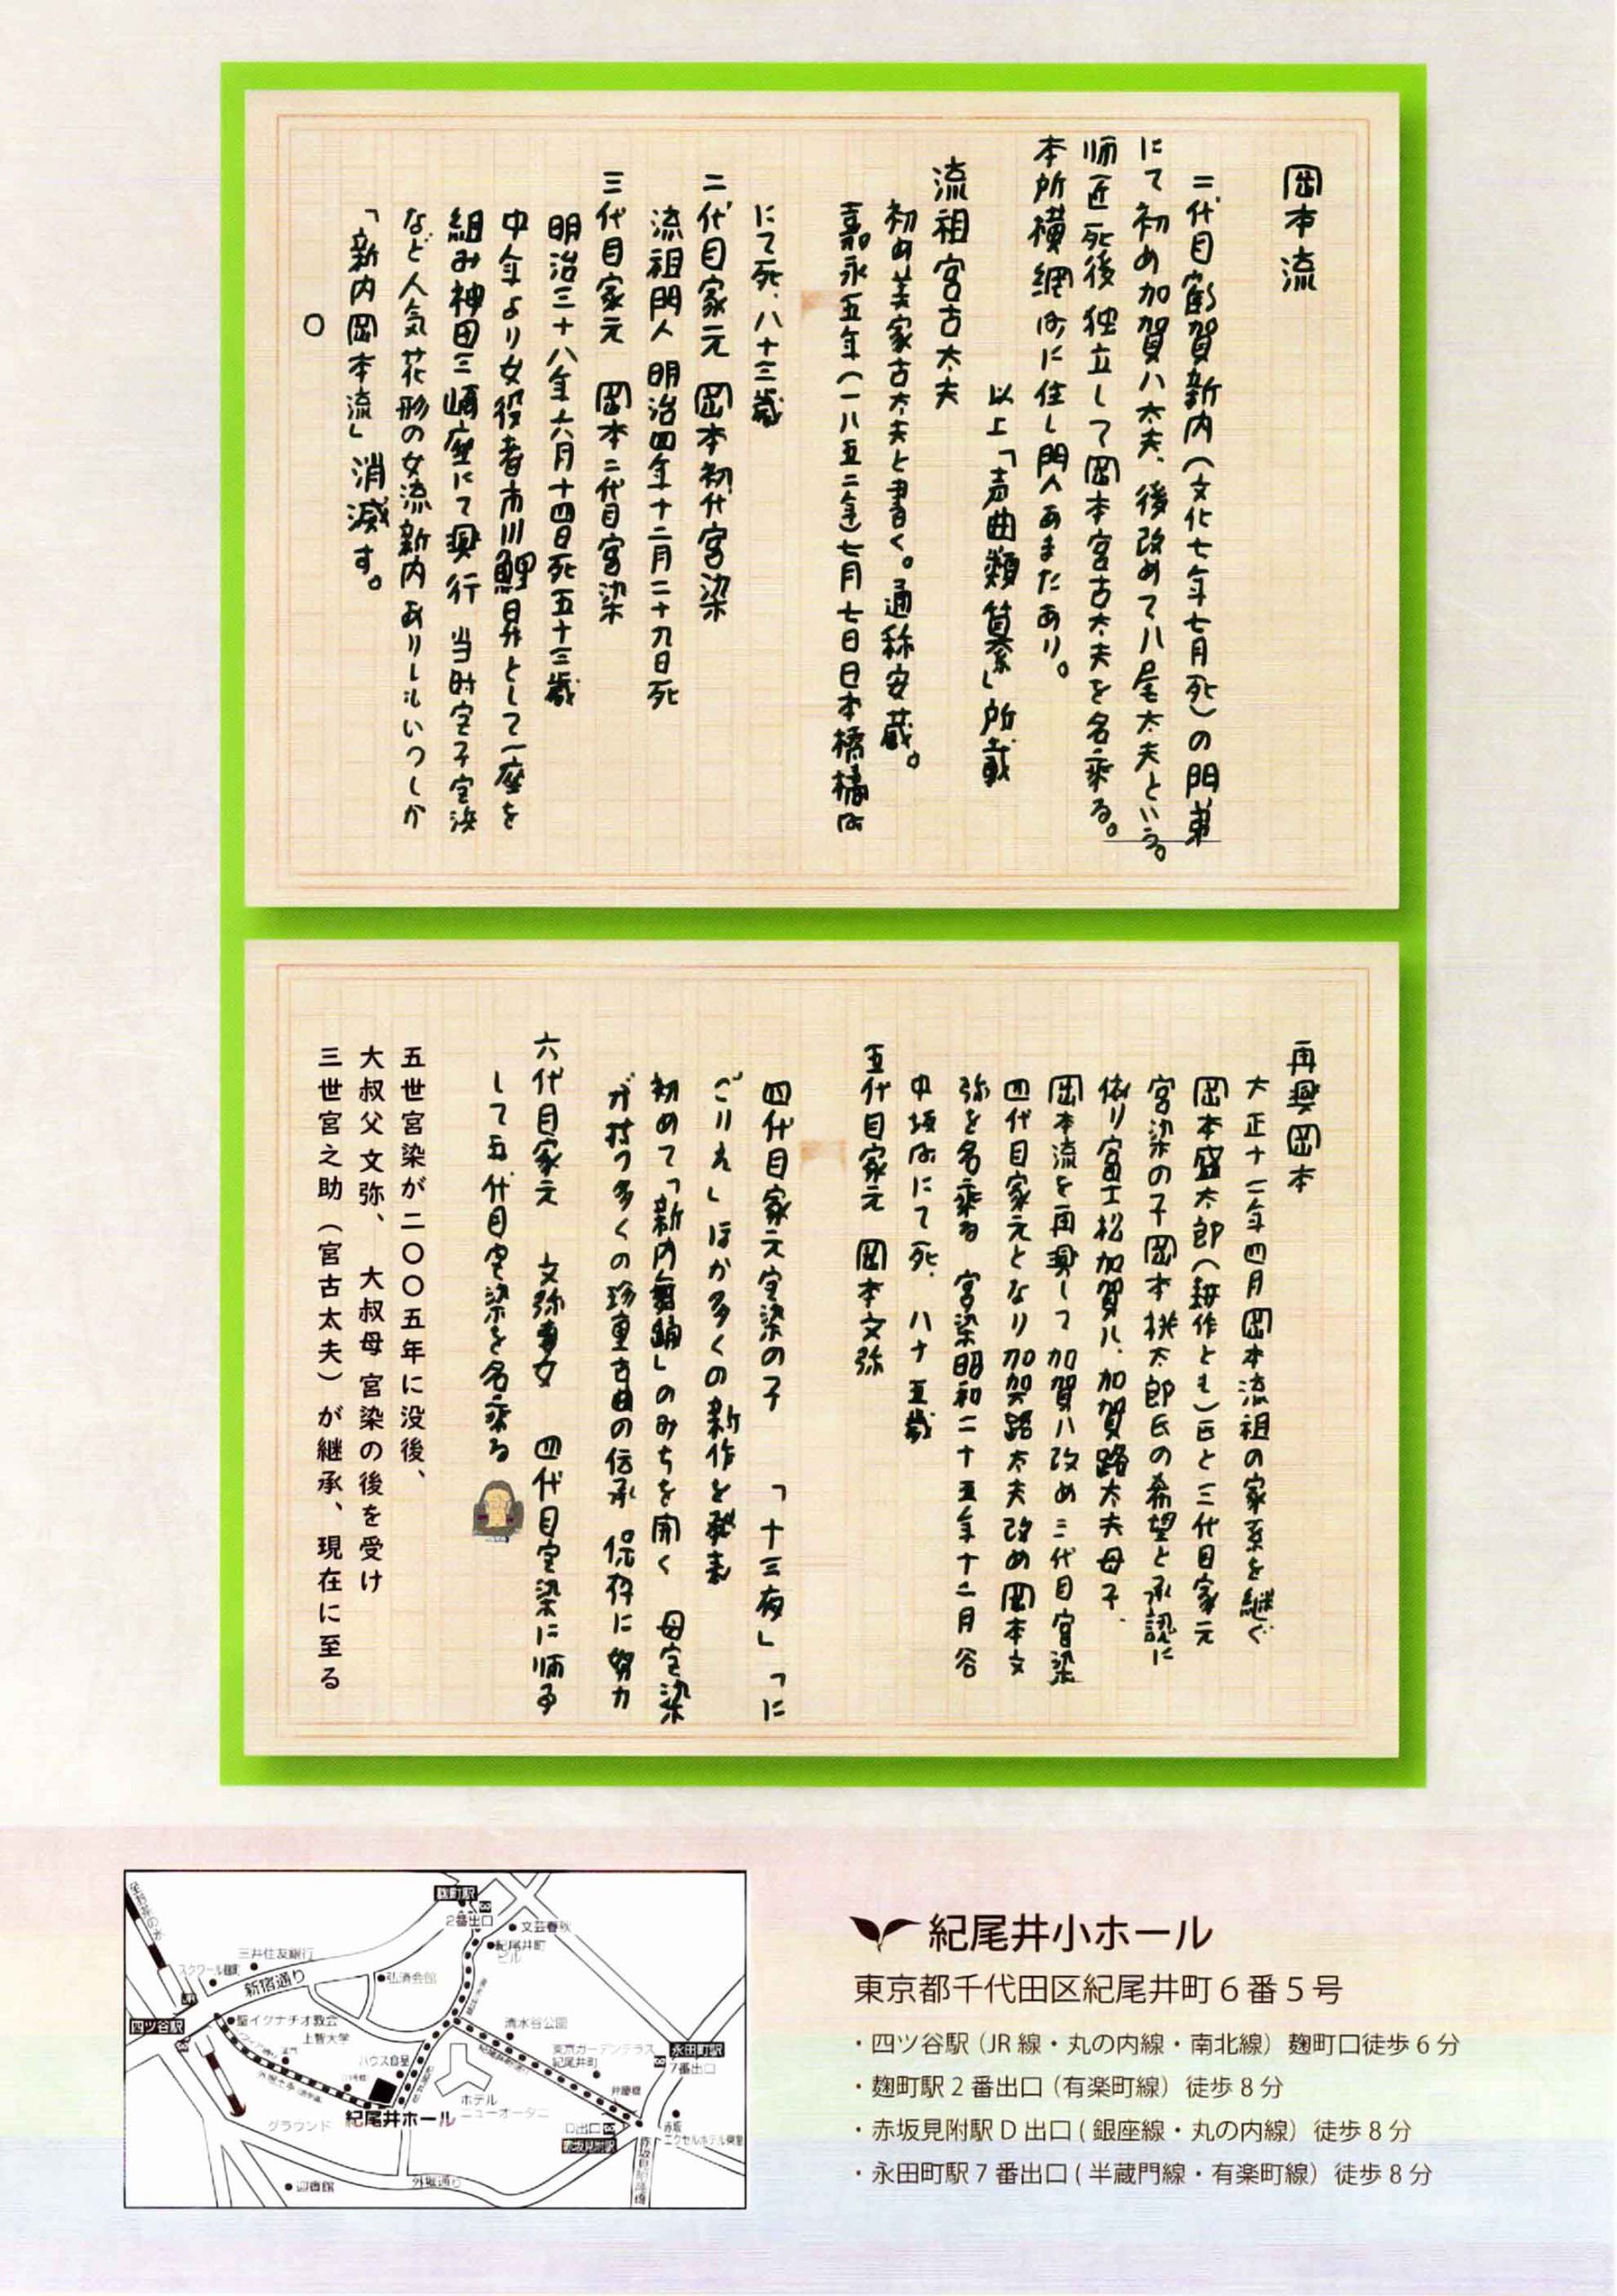 岡本流
二代目鶴賀新内（文化七年七月死）の門弟
にて初め加賀八太夫、後改めて八尾太夫という。
師匠死後独立して岡本宮古太夫を名乗る。
本所横網町に住し門人あまたあり。
以上「声曲類纂」所載
流祖宮古太夫
初め美家古太夫と書く。通称安蔵。
嘉永五年（一八五二年）七月七日日本橋橘町
にて死、八十三歳
二代目家元 岡本初代宮染
流祖門人 明治四年十二月二十九日死
三代目家元 岡本二代目宮染
明治三十八年六月十四日死五十三歳
中年より女役者市川鯉昇として一座を
組み神田三崎座にて興行 当時宮子宮浜
など人気花形の女流新内ありしもいつしか
「新内岡本流」消滅す。
○
再興岡本
大正十二年四月岡本流祖の家系を継ぐ
岡本盛太郎（耕作とも）氏と三代目家元
宮染の子岡本桃太郎氏の希望と承認に
依り富士松加賀八、加賀路太夫母子、
岡本流を再興して加賀八改め三代目宮染
四代目家元となり加賀路太夫改め岡本文
弥を名乗る 宮染昭和二十五年十二月谷
中坂町にて死、八十五歳
五代目家元 岡本文弥
四代目家元宮染の子 「十三夜」「に
ごりえ」ほか多くの新作を発表
初めて「新内舞踊」のみちを開く 母宮染
が持つ多くの珍重古曲の伝承 保存に努力
六代目家元 文弥妻女 四代目宮染に師事
して五代目宮染を名乗る
五世宮染が二〇〇五年に没後、
大叔父文弥、大叔母宮染の後を受け
三世宮之助（宮古太夫）が継承、現在に至る
麹町駅
2番出口
文芸春秋
紀尾井町
ビル
三井住友銀行
スクワール麹町
新宿通り
弘済会館
JR
四ツ谷駅
聖イグナチオ教会
上智大学
清水谷公園
東京ガーデンテラス
紀尾井町
永田町駅
7番出口
ハウス食品
弁慶橋
ホテル
ニューオータニ
紀尾井ホール
グラウンド
D出口
赤坂見附駅
赤坂
エクセルホテル東急
外堀通り
迎賓館
紀尾井小ホール
東京都千代田区紀尾井町6番5号
・四ツ谷駅（JR線・丸の内線・南北線）麹町口徒歩6分
・麹町駅2番出口（有楽町線）徒歩8分
・赤坂見附駅D出口(銀座線・丸の内線）徒歩8分
・永田町駅7番出口(半蔵門線・有楽町線）徒歩8分